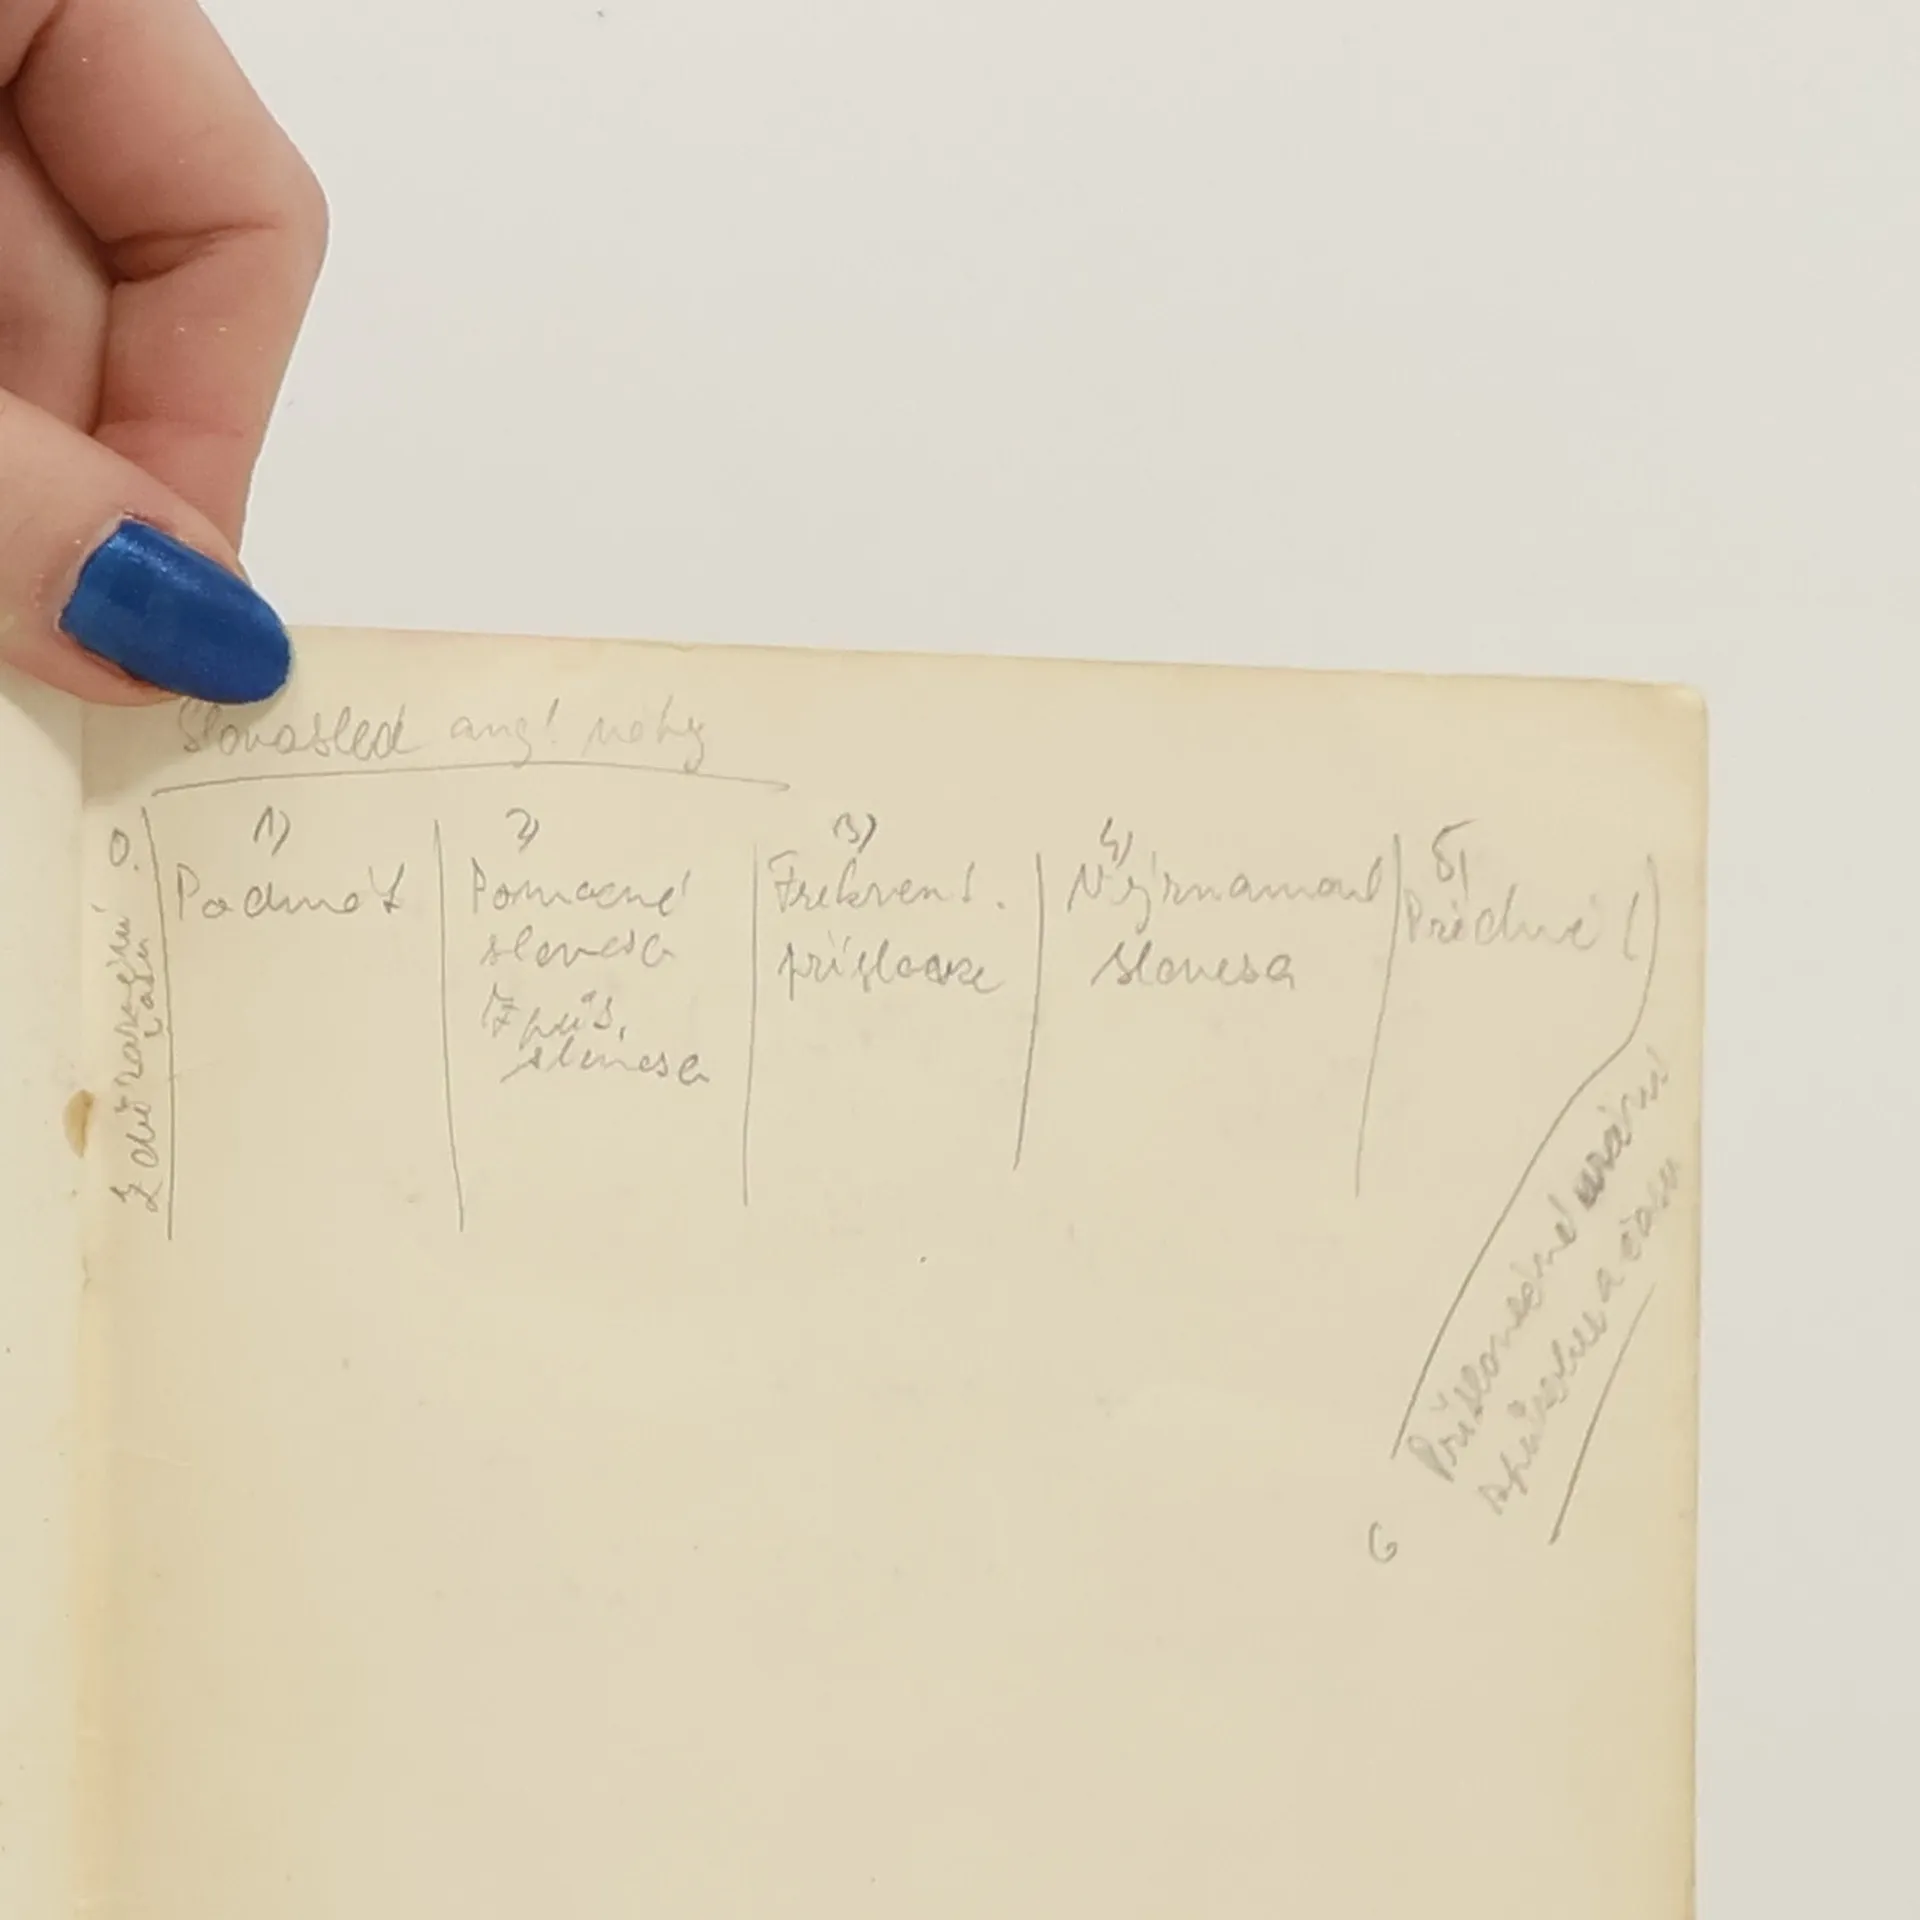 Slovosled angl. věty
0.
Zdůraznění
času
1)
Podmět
2)
Pomocné
slovesa
Způs.
slovesa
3)
Frekvenč.
příslovce
4)
Významové
slovesa
5)
Předmět
6
Příslovečné určení
způsobu a času